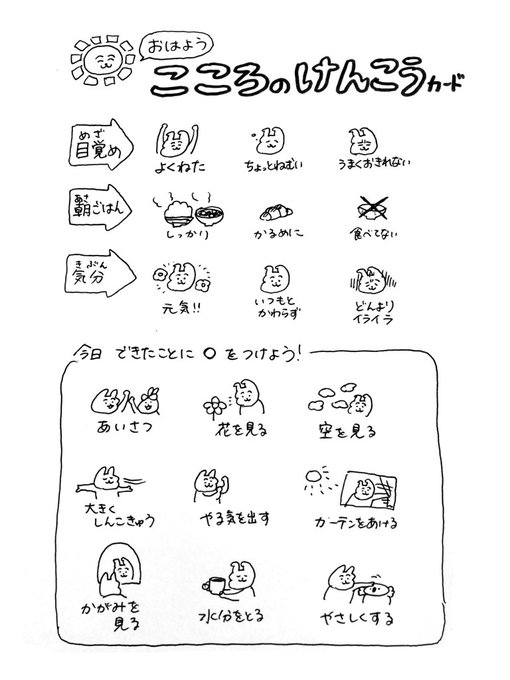 おはよう
こころのけんこうカード
めざ
目覚め
よくねた
ちょっとねむい
うまくおきれない
あさ
朝ごはん
しっかり
かるめに
食べてない
きぶん
気分
元気!!
いつもと
かわらず
どんより
イライラ
今日 できたことに ○ をつけよう!
あいさつ
花を見る
空を見る
大きく
しんこきゅう
やる気を出す
カーテンをあける
かがみを
見る
水分をとる
やさしくする